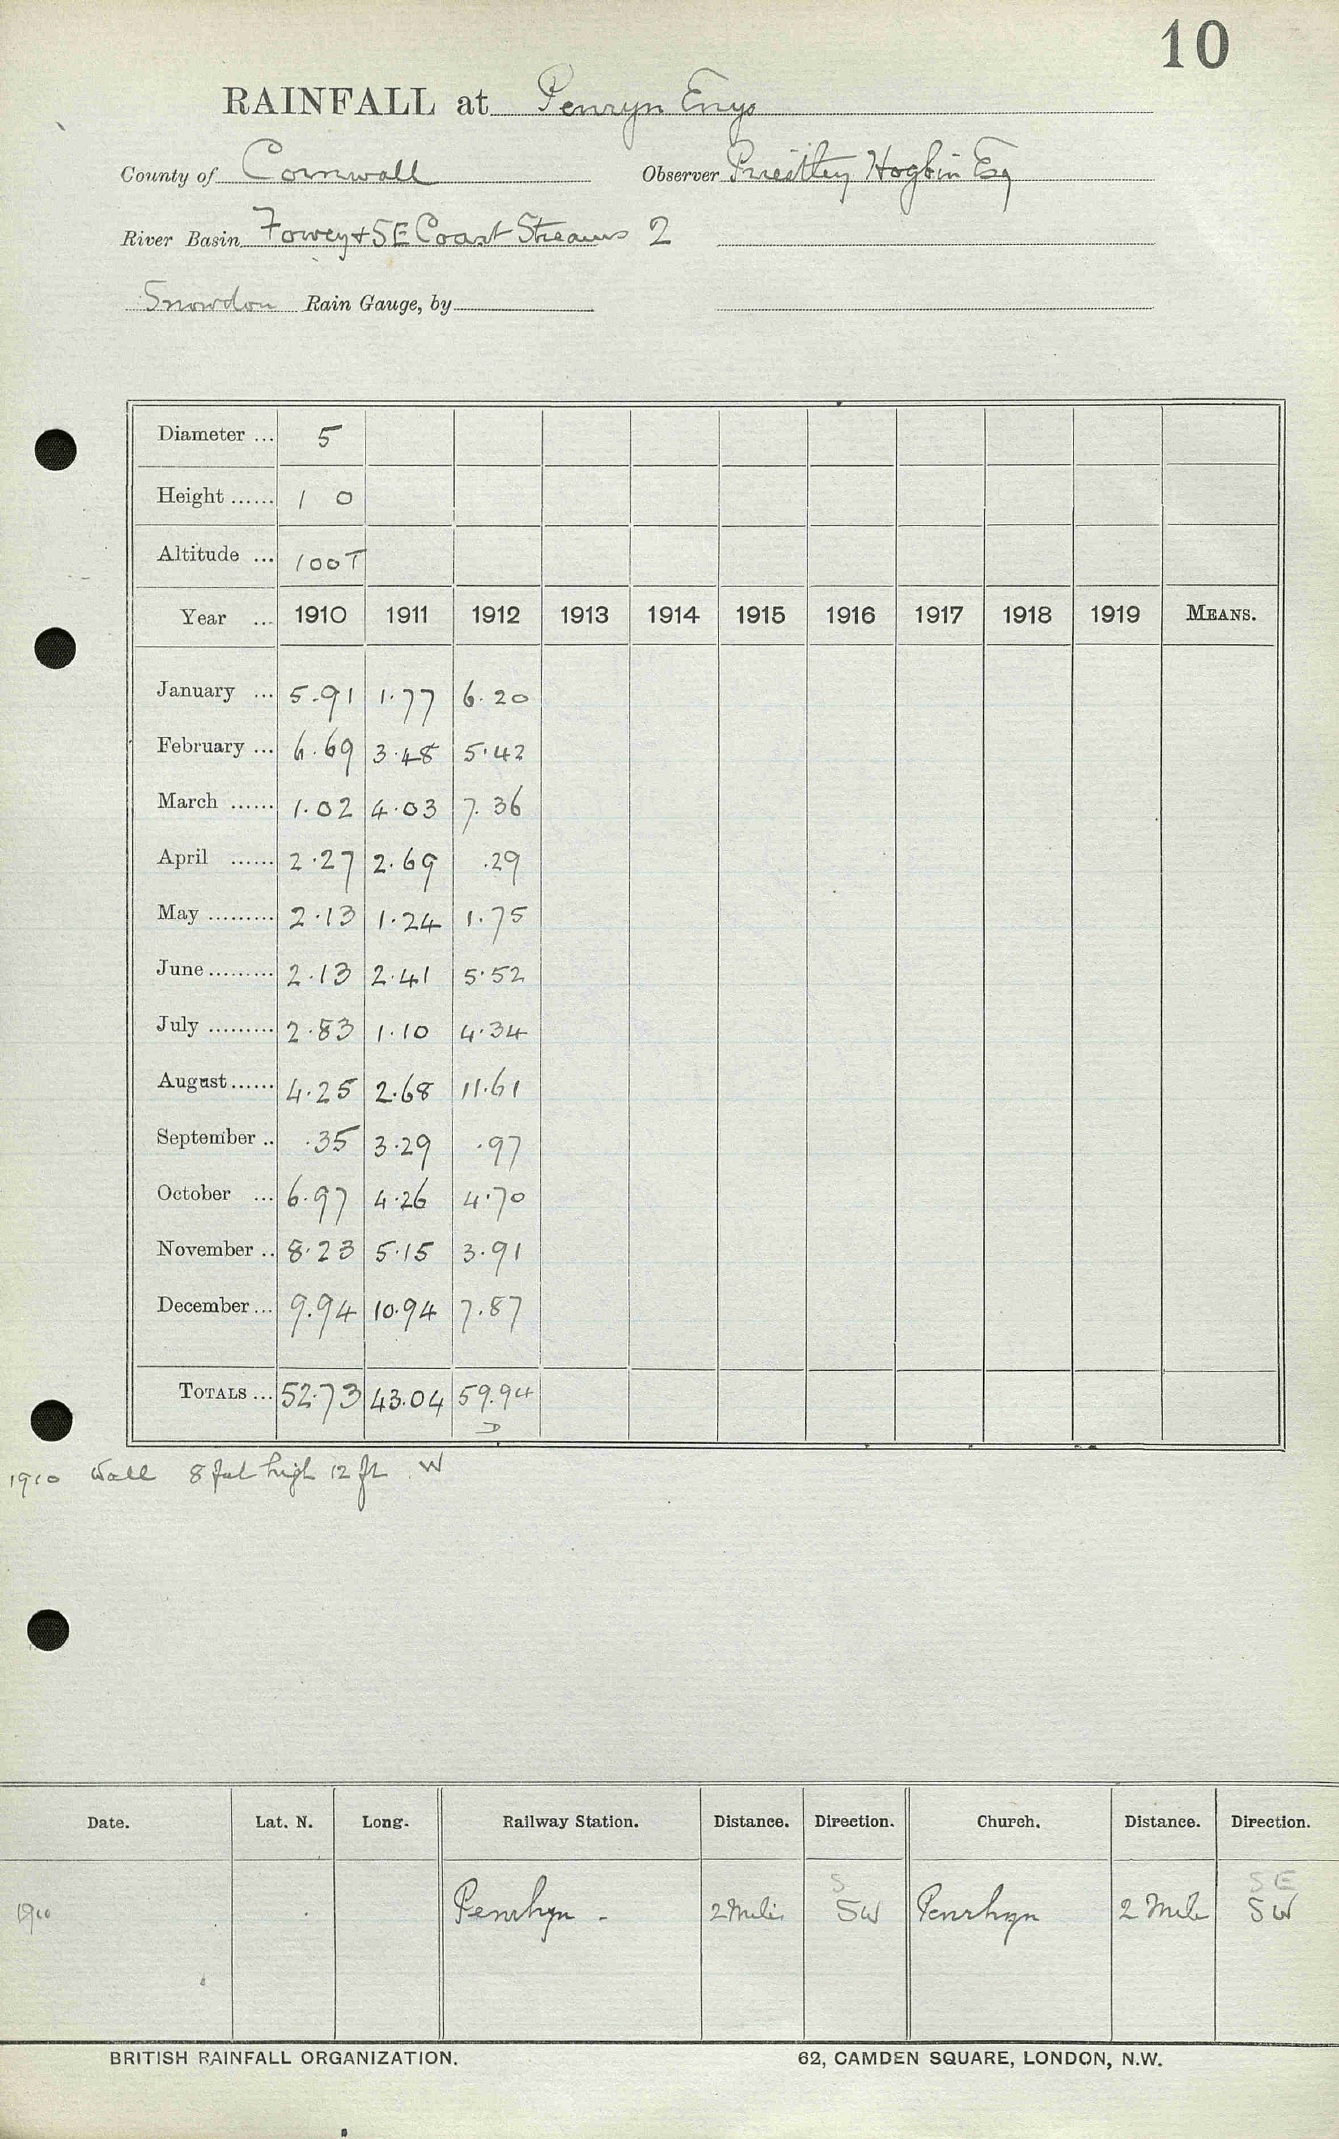 10
RAINFALL at Penryn Enys
County of Cornwall Observer Priestley Hogbin Esq
River Basin Fowey + SE Coast Streams 2
Snowdon Rain Gauge, by
Diameter ... 5
Height ...... 1 0
Altitude ... 100 T
Year ... 1910 1911 1912 1913 1914 1915 1916 1917 1918 1919 MEANS.
January ... 5.91 1.77 6.20
February ... 6.69 3.48 5.42
March ...... 1.02 4.03 7.36
April ...... 2.27 2.69 .29
May ......... 2.13 1.24 1.75
June ......... 2.13 2.41 5.52
July ......... 2.83 1.10 4.34
August ...... 4.25 2.68 11.61
September .. .35 3.29 .97
October ... 6.97 4.26 4.70
November .. 8.23 5.15 3.91
December ... 9.94 10.94 7.87
TOTALS ... 52.73 43.04 59.94
D
1910 Wall 8 feet high 12 ft W
Date. Lat. N. Long. Railway Station. Distance. Direction. Church. Distance. Direction.
S SE
1910 Penrhyn - 2 Miles SW Penrhyn 2 Mile SW
BRITISH RAINFALL ORGANIZATION. 62, CAMDEN SQUARE, LONDON, N.W.